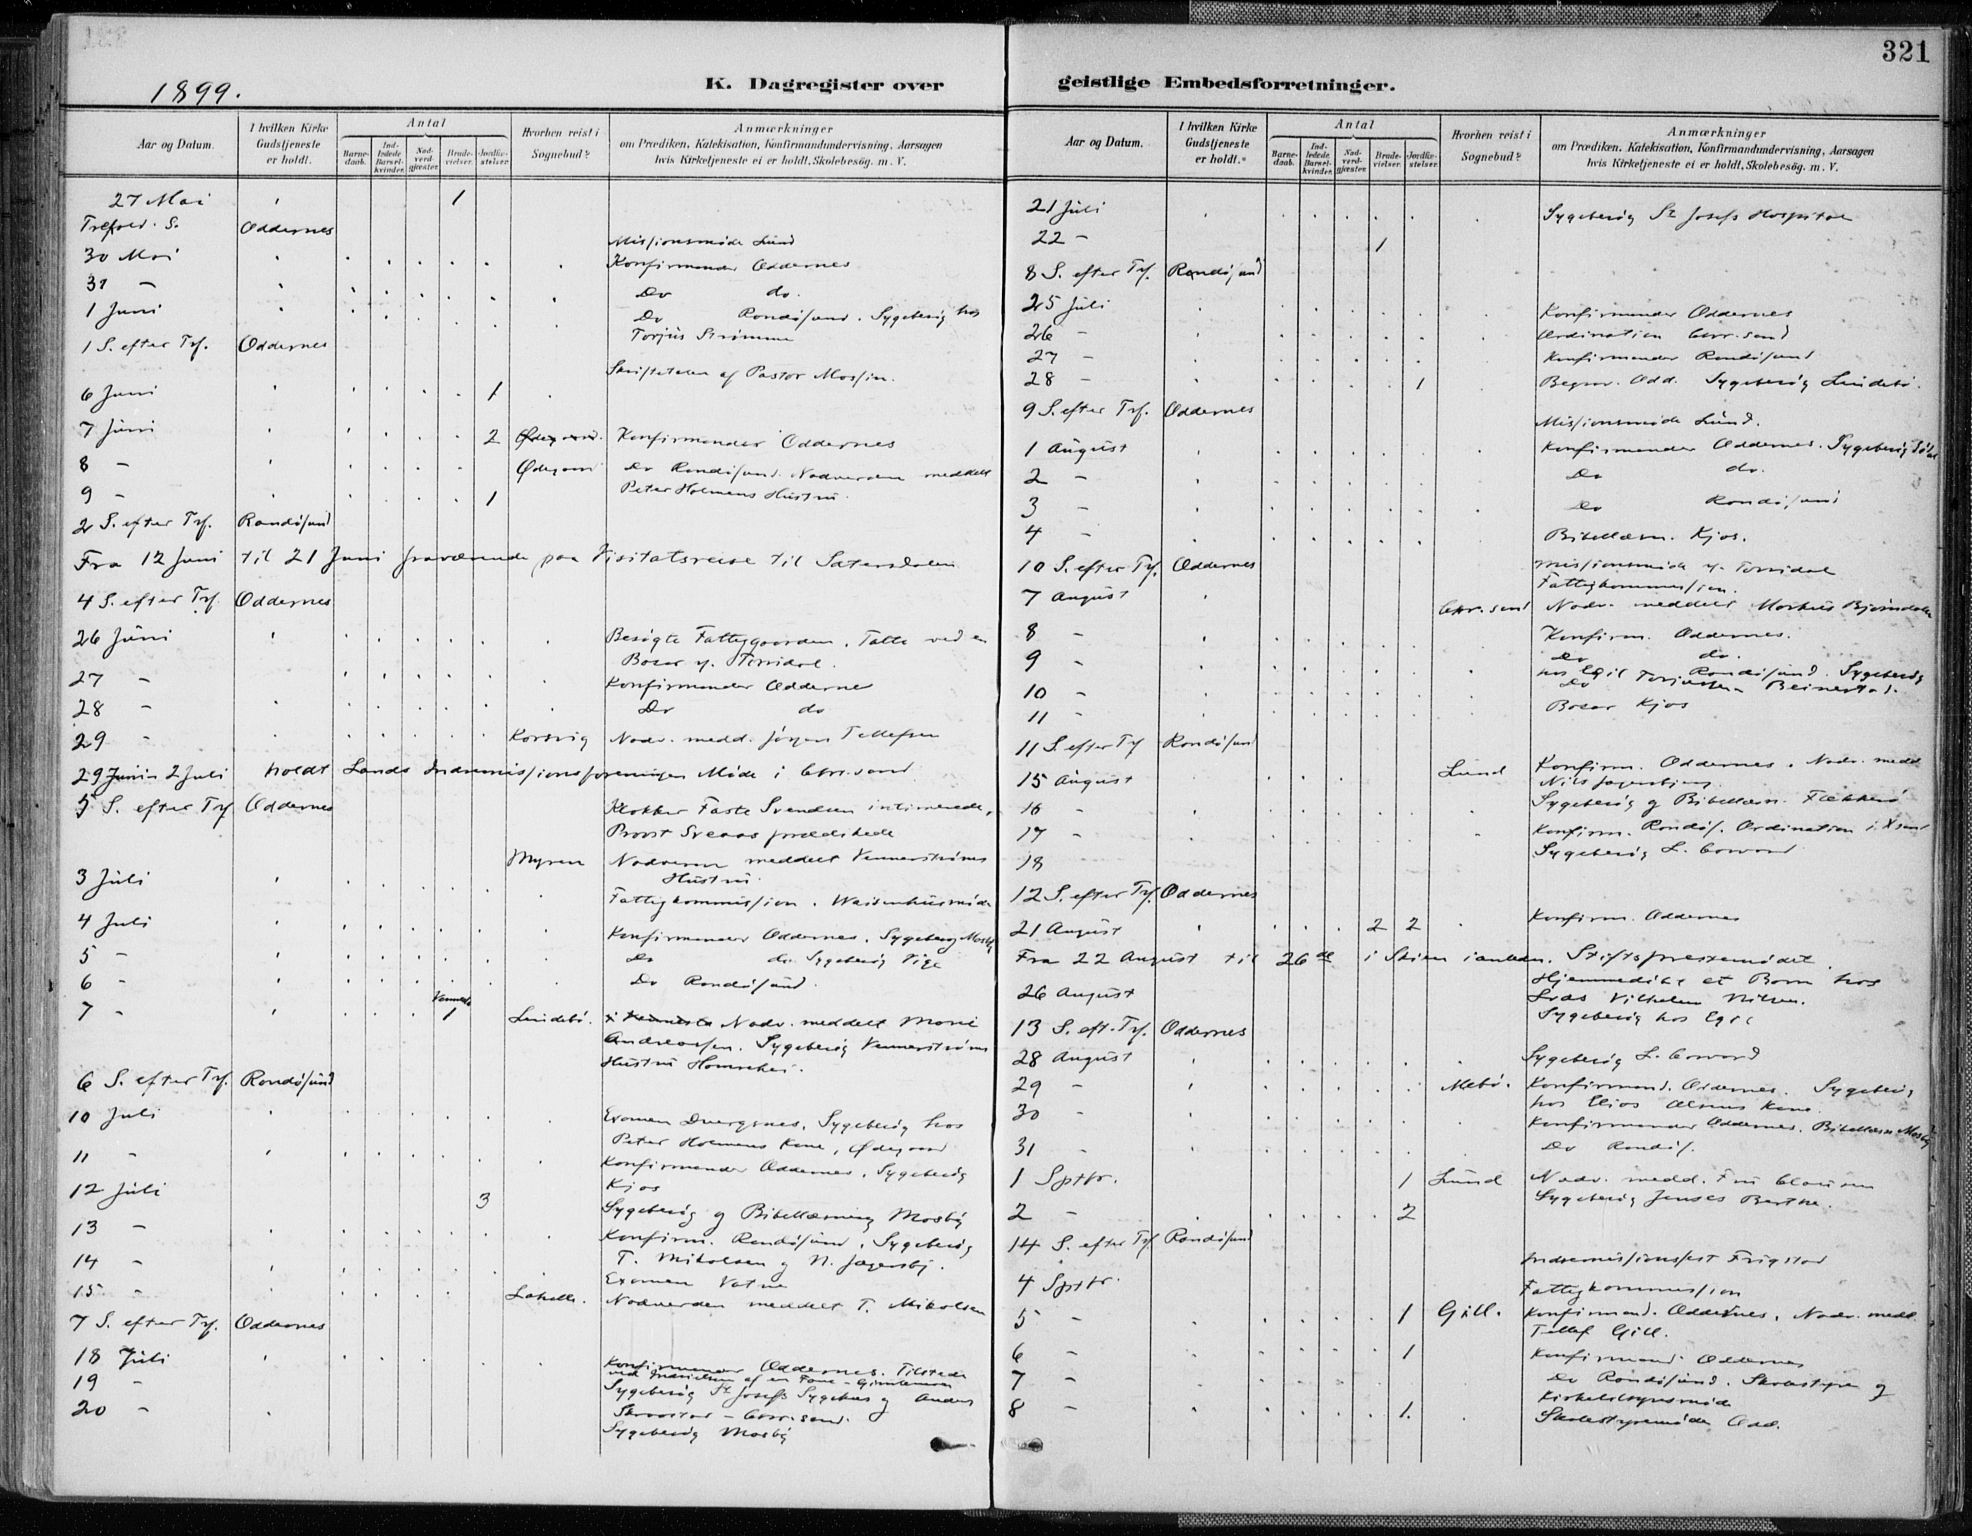 321
1899.
K. Dagregister over geistlige Embedsforretninger.
Aar og Datum.
I hvilken Kirke Gudstjeneste er holdt.
Antal
Barnedaab.
Indledede Barselkvinder.
Nadverdgjæster.
Brudevielser.
Jordfæstelser.
Hvorhen reist i Sognebud?
Anmærkninger
om Prædiken, Katekisation, Konfirmandundervisning, Aarsagen
hvis Kirketjeneste ei er holdt, Skolebesög. m. V.
27 Mai 1
Trefold. S. Oddernes
Missionsmøde Lund
30 Mai Konfirmander Oddernes
31 - Do do.
1 Juni Do Randøsund. Sygebesøg hos
Torjus Strømme
1 S. efter Trf. Oddernes
Skriftetalen af Pastor
6 Juni 1
7 Juni 2 Konfirmander Oddernes
8 - Ødegaard Do Randøsund. Nadverden meddelt
Peter Holmens Hustru.
9 - 1
2 S. efter Trf. Randøsund
Fra 12 Juni til 21 Juni fraværende paa Visitatsreise til Sætersdalen
4 S. efter Trf. Oddernes
26 Juni Besøgte Fattiggaarden. Talte ved en
Basar i Torridal.
27 - Konfirmander Oddernes
28 - Do do
29 - Korsvig Nadv. medd. Jørgen Tellefsen
29 Juni - 2 Juli holdt Lands Indremissionsforeningen Møde i Chr.sand
5 S. efter Trf. Oddernes Klokker Faste Svendsen intimerede,
Provst Sveaas prædikede
Myren Nadveren meddelt Vennerstrøms
Hustru.
3 Juli
Fattigkommission. Waisenhusmøde
4 Juli Konfirmander Oddernes. Sygebesøg Mosby
5 - Do do. Sygebesøg Vige
6 - Do Randøsund.
7 - Vennesla 1 Lindebø. Nadv. meddelt Marie
Andreassen. Sygebesøg Vennerstrøms
Hustru
6 S. efter Trf. Randøsund
10 Juli Examen Dvergsnes. Sygebesøg hos
Peter Holmens Kone, Ødegaard
11 - Konfirmander Oddernes. Sygebesøg
Kjos
12 Juli 3 Sygebesøg og Bibellæsning Mosby
13 - Konfirm. Randøsund. Sygebesøg
T. Mikalsen og N. Jægersbj.
14 - Examen Vatne
15 - Nadverden meddelt T. Mikalsen
7 S. efter Trf. Oddernes
18 Juli Konfirmander Oddernes. Tilstede
ved Indvielsen af en Fane - Gimlemoen
19 - Sygebesøg St. Josefs Sygehus og Anders
- Chr.sand.
20 - Sygebesøg Mosby
21 Juli Sygebesøg St. Josefs Hospital
22 - 1
8 S. efter Trf. Randøsund
25 Juli Konfirmander Oddernes
26 - Ordination Chr.sand
27 - Konfirmander Randøsund
28 - 1 Begrav. Odd. Sygebesøg Lindebø.
9 S. efter Trf. Oddernes
Missionsmøde Lund.
1 August Konfirmander Oddernes. Sygebesøg
2 - Do do.
3 - Do Randøsund
4 - Bibellæsn. Kjos.
10 S. efter Trf. Oddernes Missionsmøde i Torridal
Fattigkommission.
7 August Chr.sand Nadv. meddelt Markus Bjørndalen
8 - Konfirm. Oddernes.
9 - Do do.
10 - Do Randøsund. Sygebesøg
hos Egil Torjussen Beinestad.
11 - Basar Kjos
11 S. efter Trf. Randøsund
15 August Lund Konfirm. Oddernes. Nadv. medd
Nils Jægersbj.
16 - Sygebesøg og Bibellæsn. Flekkerø
17 - Konfirm. Randøs. Ordination i Xsand
18 Sygebesøg L.
12 S. efter Trf. Oddernes
21 August 2 2 Konfirm. Oddernes
Fra 22 August til 26de i Skien i anledn. Stiftspræstemødet.
26 August Hjemmedøbt et Barn hos
Vilhelm Nilsen.
Sygebesøg hos
13 S. eft. Trf. Oddernes
28 August Sygebesøg L.
29 - Mebø. Konfirmand. Oddernes. Sygebesøg
hos Elias Olsens Kone.
30 - Konfirmander Oddernes. Bibellæsn Mosby
31 - Do Randøs.
1 Septbr. 1 Lund Nadv. medd. Fru
2 - 2 Sygebesøg Jenses Berthe.
14 S. efter Trf Randøsund
Indremissionsfest Frigstad
4 Septbr. Fattigkommission
5 - 1 Gill. Konfirmand. Oddernes. Nadv. medd.
Tellef Gill.
6 - 1 Konfirmand. Oddernes
7 - Do Randøsund. Skolestyre og
Kirketilsynsmøde
8 - 1. Skolestyremøde Odd.